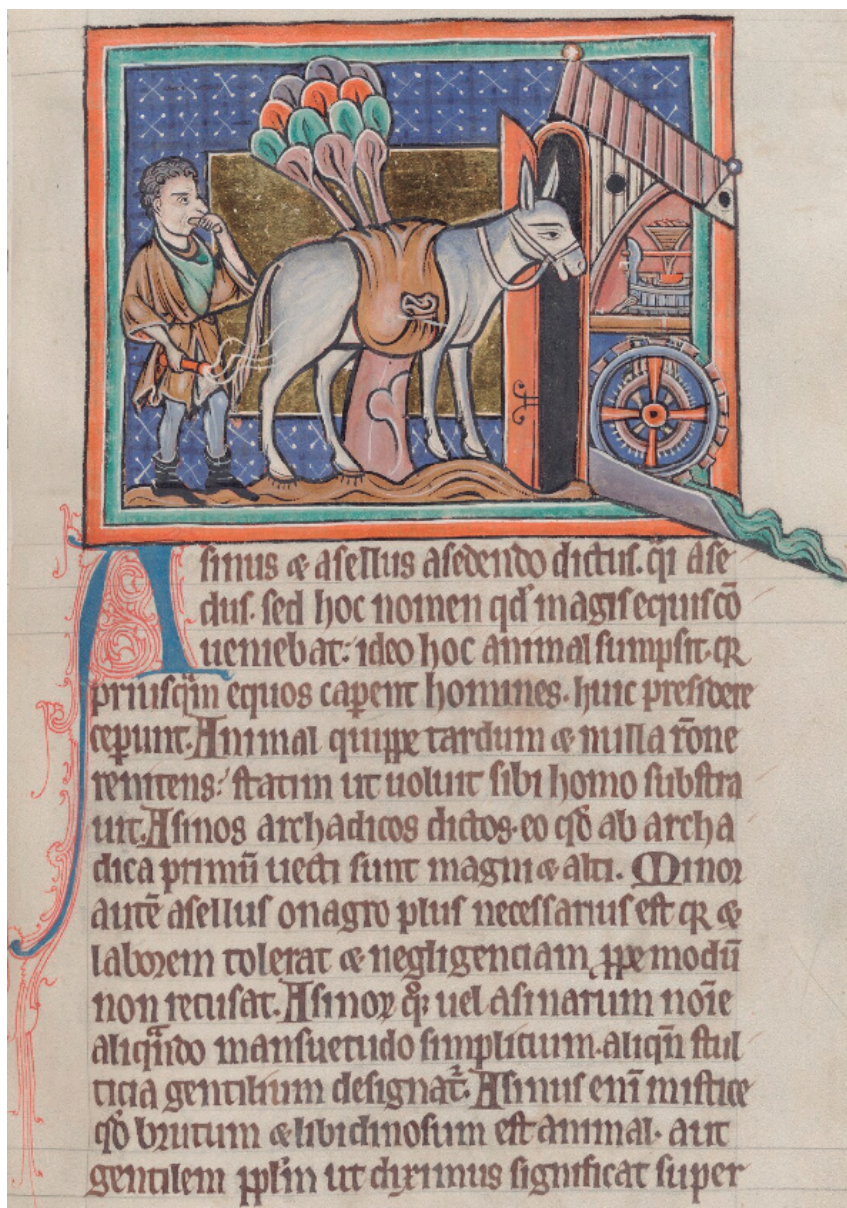 Asinus & asellus asedendo dictus. q̅i ase
dus. sed hoc nomen qd̅ magis equis cō
ueniebat: ideo hoc animal sumpsit. qꝛ
priusq̅m equos cap̅ent homines. huic presidere
cep̅unt. Animal quippe tardum & nulla rōne
renitens: statim ut uoluit sibi homo substra
uit. Asinos archadicos dictos. eo qd̅ ab archa
dica primū uecti sunt magni & alti. Minor
autē asellus onagro plus necessarius est qꝛ &
laborem tolerat & negligenciam ꝓpe modū
non recusat. Asinoꝝ q̊ꝫ uel asinarum noīe
aliqͣndo mansuetudo simplicium. aliqn̅ stul
ticia gentilium designat᷑. Asinus enī mistice
qd̅ brutum & libidinosum est animal. aut
gentilem pp̅lm ut diximus significat super